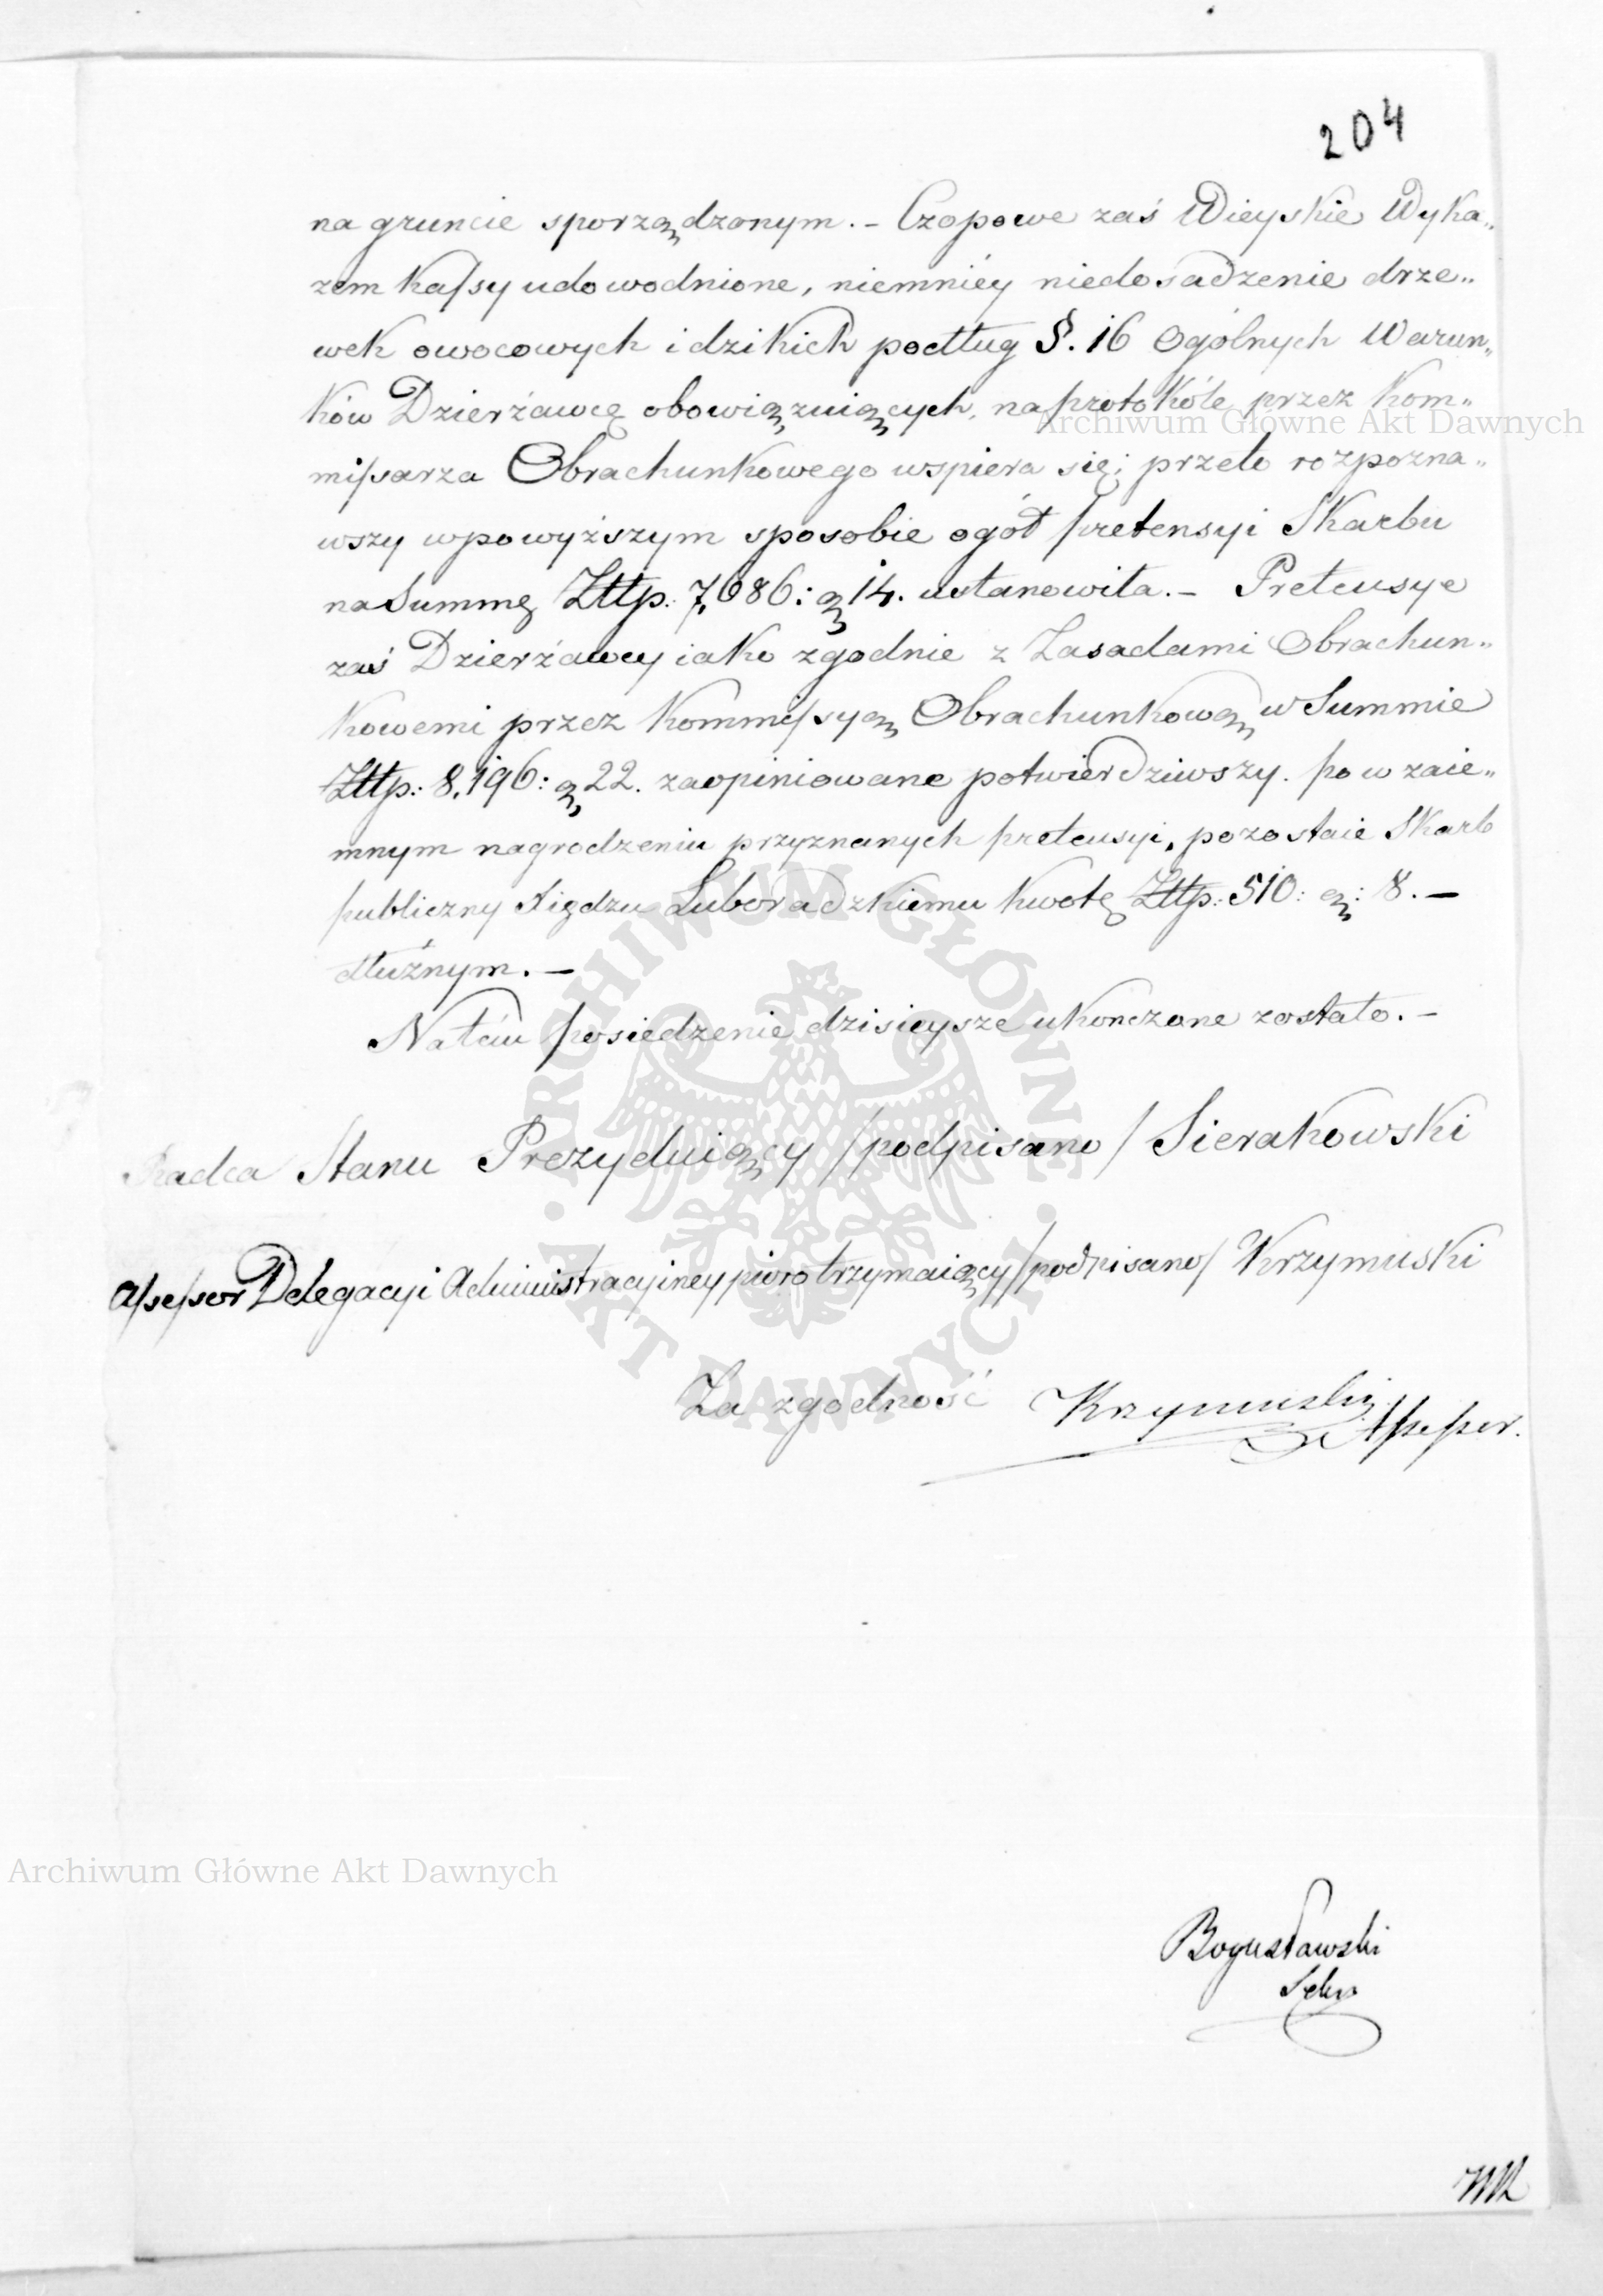 204
na gruncie sporządzonym. – Czopowe zaś Wieyskie Wyka„
zem Kassy udowodnione, niemniéy niedosadzenie drze„
wek owocowych i dzikich podług §. 16 Ogólnych Warun„
ków Dzierżawcę obowiązuiących, na protokóle przez Kom„
missarza Obrachunkowego wspiera się; przeto rozpozna„
wszy w powyższym sposobie ogół pretensyi Skarbu
na Summę Złłp. 7,686: g 14. ustanowiła. – Pretensye
zaś Dzierżawcy iako zgodnie z Zasadami Obrachun„
kowemi przez Kommissyą Obrachunkową w Summie
Złłp: 8,196: g 22. zaopiniowane potwierdziwszy. po wzaie„
mnym nagrodzeniu przyznanych pretensyi, pozostaie Skarb
publiczny Xiędzu Luboradzkiemu kwotę Złłp: 510: g: 8. –
dłużnym. –
Na tém posiedzenie dzisieysze ukończone zostało. –
Radca Stanu Prezyduiący /podpisano/ Sierakowski
Assessor Delegacyi Administracyiney pioro trzymaiący /podpisano/ Krzymuski
Za zgodność Krzymuski
Assessor.
Bogusławski
Archiwum Główne Akt Dawnych
Archiwum Główne Akt Dawnych
ARCHIWUM GŁÓWNE AKT DAWNYCH